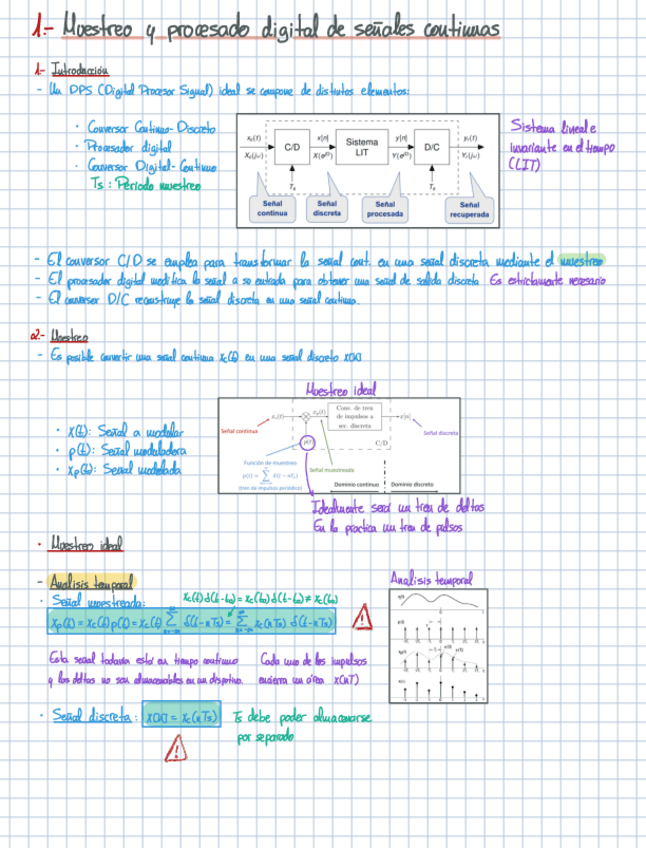 1.- Muestreo y procesado digital de señales continuas
1- Introducción
- Un DPS (Digital Procesor Signal) ideal se compone de distintos elementos:
· Conversor Continuo-Discreto
· Procesador digital
· Conversor Digital-Continuo
Ts: Período muestreo
x_c(t) C/D x[n] Sistema LIT y[n] D/C y_r(t)
X_c(jω) X(e^jΩ) Y(e^jΩ) Y_r(jω)
T_s T_s
Señal continua
Señal discreta
Señal procesada
Señal recuperada
Sistema lineal e
invariante en el tiempo
(LIT)
- El conversor C/D se emplea para transformar la señal cont. en una señal discreta mediante el muestreo
- El procesador digital modifica la señal a su entrada para obtener una señal de salida discreta Es estrictamente necesario
- El conversor D/C reconstruye la señal discreta en una señal continua.
2- Muestreo
- Es posible convertir una señal continua x_c(t) en una señal discreta x[n]
Muestreo ideal
· x(t): Señal a modular
· p(t): Señal moduladora
· x_p(t): Señal modulada
x_c(t) x_p(t) Conv. de tren
de impulsos a
sec. discreta x[n]
C/D
p(t)
Señal continua
Señal discreta
Señal muestreada
Función de muestreo
(tren de impulsos periódico)
Dominio continuo Dominio discreto
Idealmente será un tren de deltas
En la practica un tren de pulsos
· Muestreo ideal
- Analisis temporal
Analisis temporal
· Señal muestreada: x_c(t) δ(t-t₀) = x_c(t₀) δ(t-t₀) ≠ x_c(t₀)
x_p(t) = x_c(t) p(t) = x_c(t) Σ δ(t-nTs) = Σ x_c(nTs) δ(t-nTs)
Esta señal todavía está en tiempo continuo
y las deltas no son almacenables en un dispositivo.
Cada uno de los impulsos
encierra un área x(nT)
· Señal discreta: x[n] = x_c(nTs)
Ts debe poder almacenarse
por separado